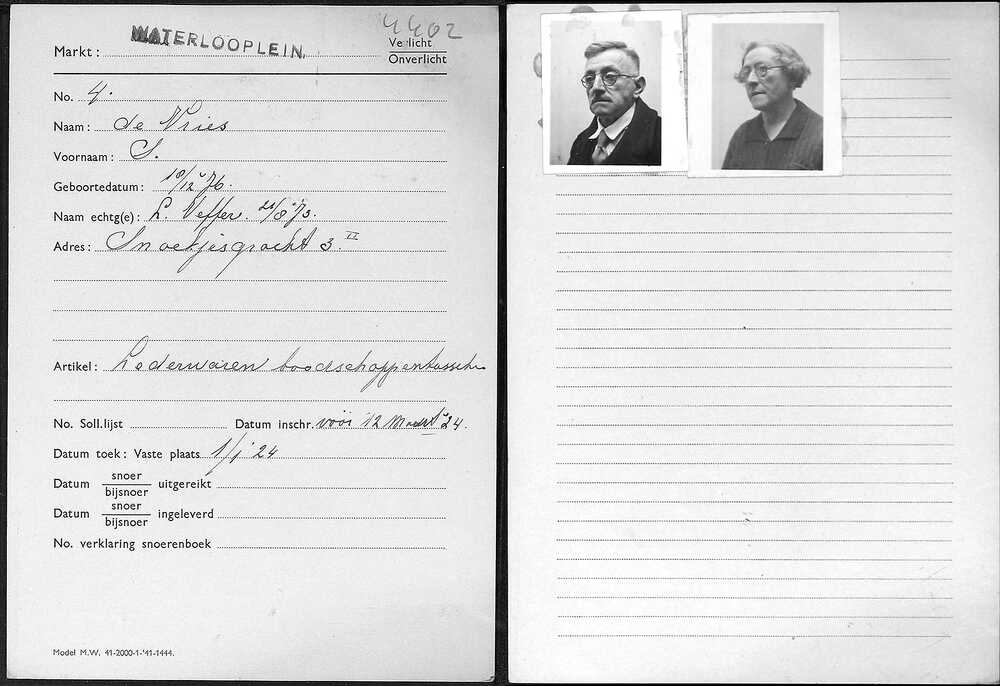 4402
Markt: WATERLOOPLEIN.
Verlicht
Onverlicht
No. 4.
Naam: de Vries
Voornaam: S.
Geboortedatum: 10/12 '76.
Naam echtg(e): L. Veffer. 21/8 '73.
Adres: Snoekjesgracht 3 II
Artikel: Lederwaren boodschappentassen
No. Soll.lijst Datum inschr. vóór 12 Maart '24.
Datum toek: Vaste plaats 1/1 '24
Datum snoer uitgereikt
bijsnoer
Datum snoer ingeleverd
bijsnoer
No. verklaring snoerenboek
Model M.W. 41-2000-1-'41-1444.